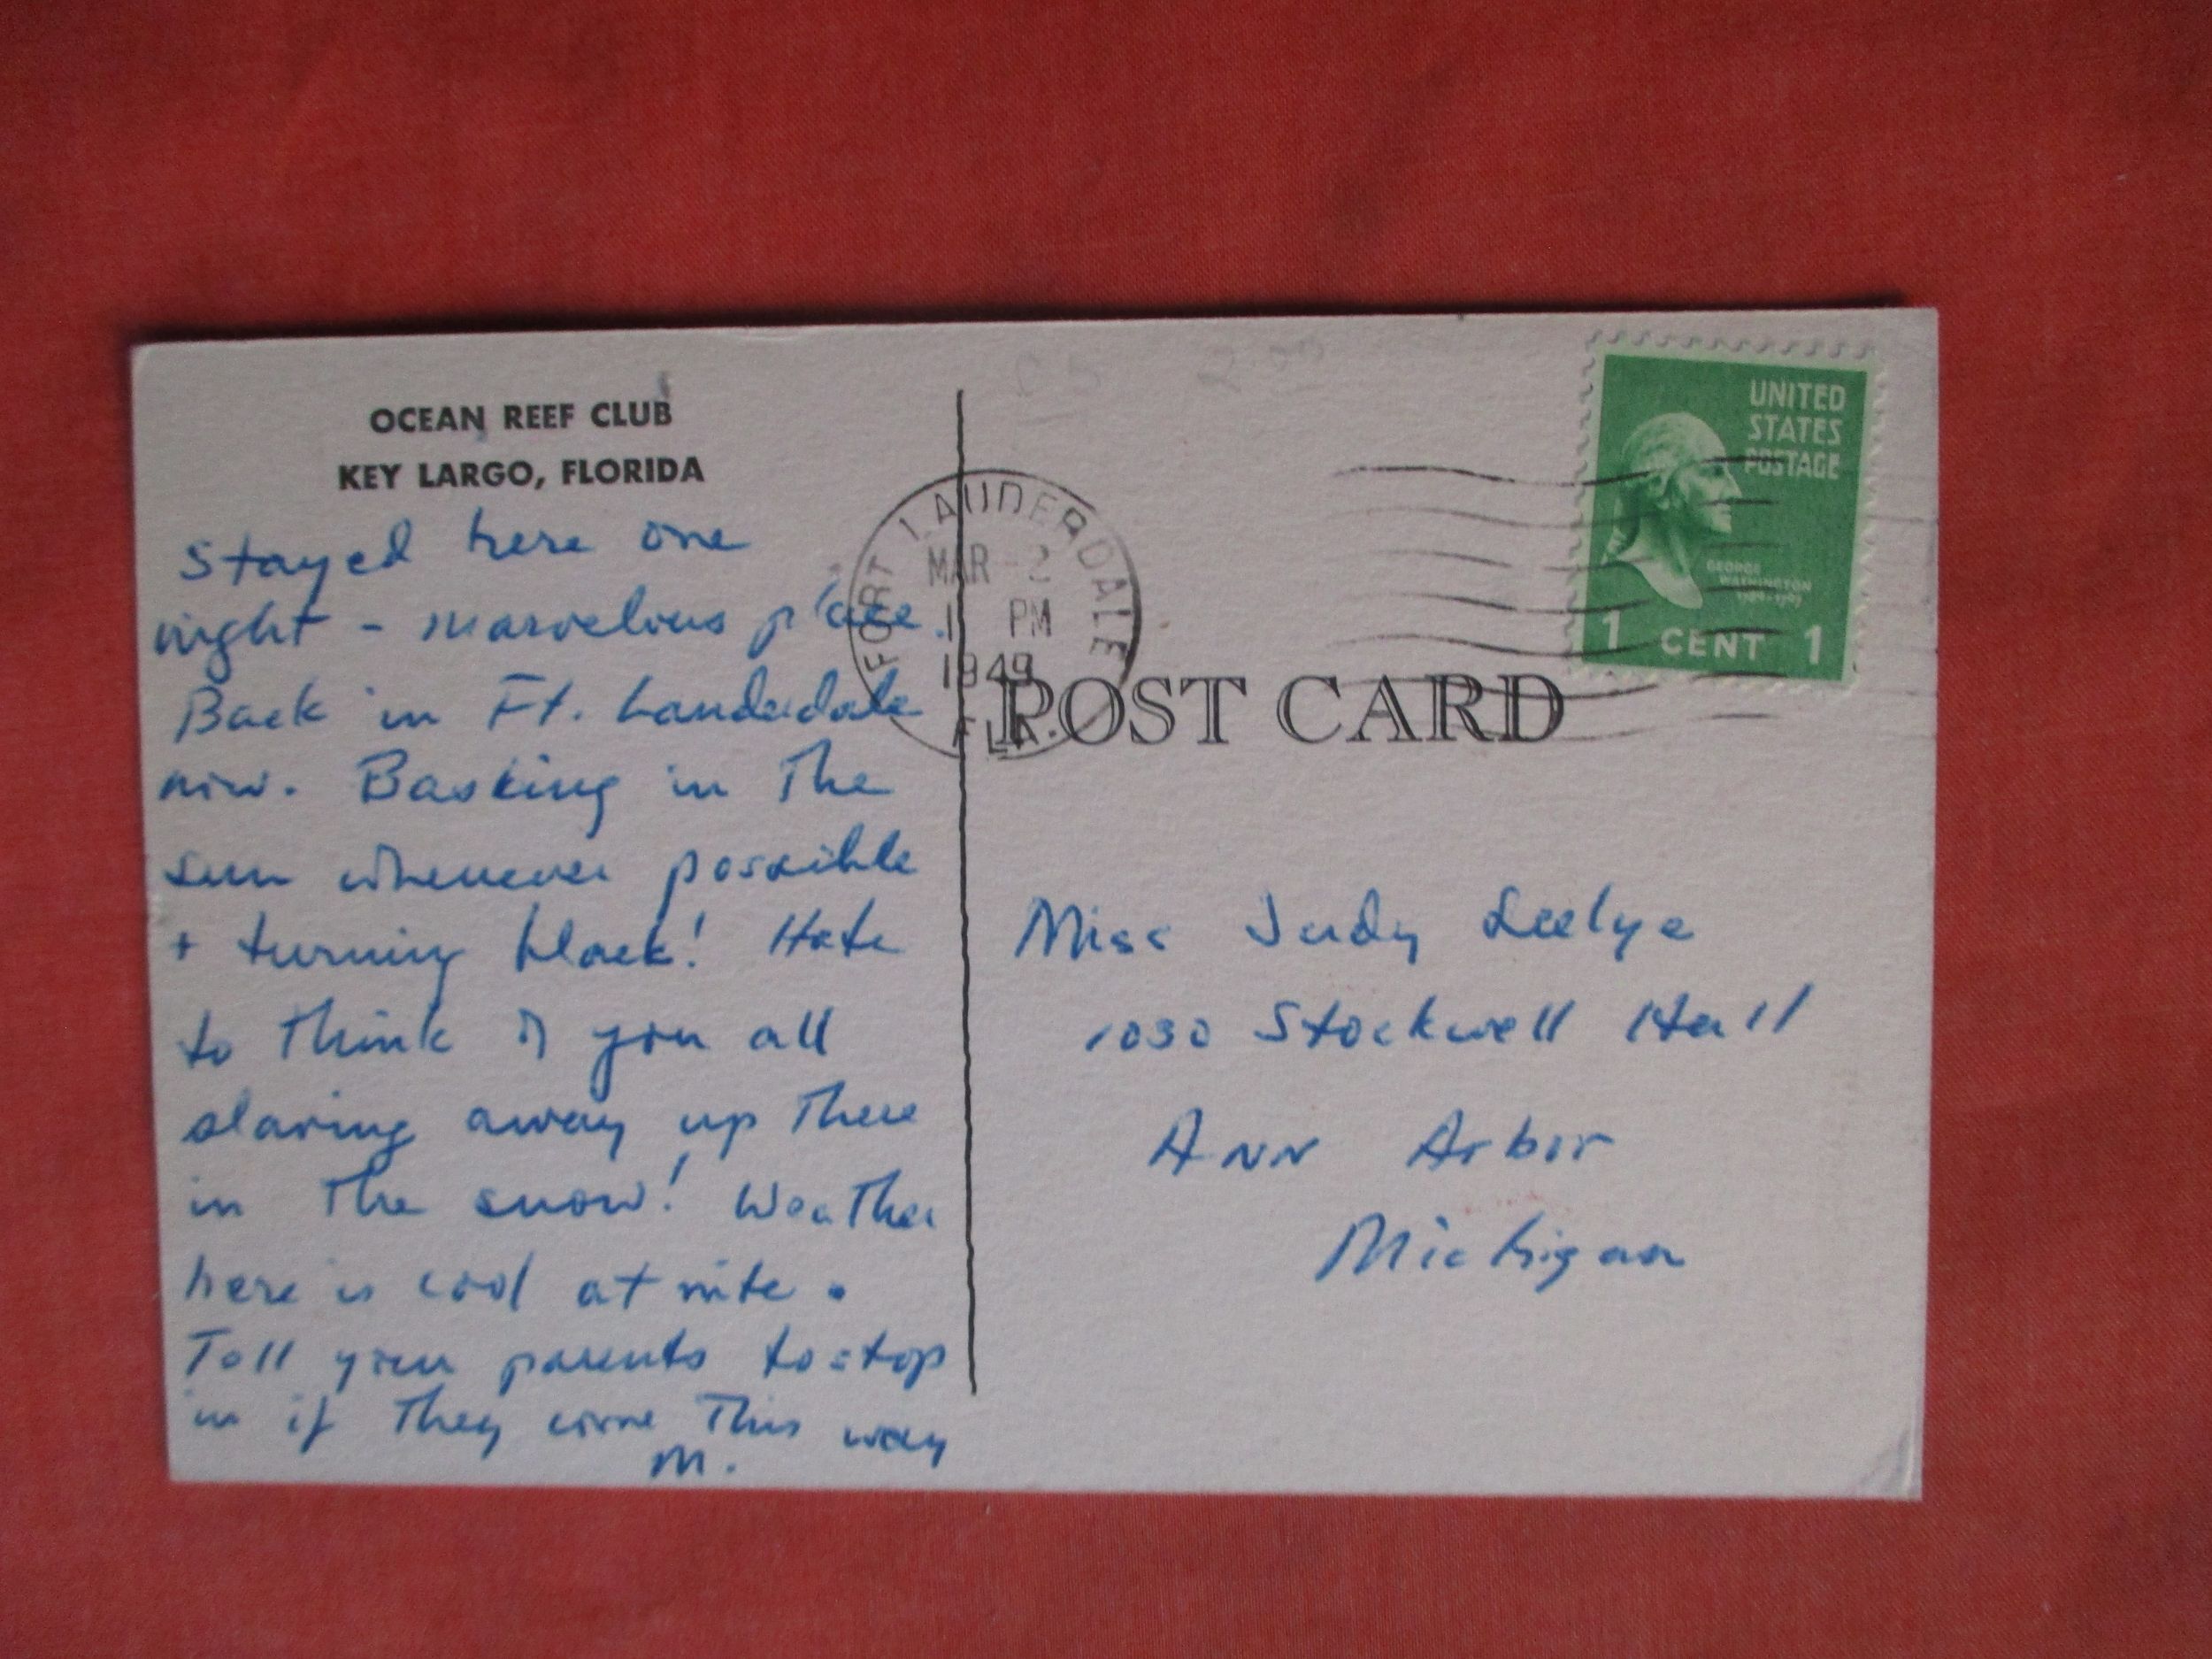 OCEAN REEF CLUB
KEY LARGO, FLORIDA
Stayed here one
night - marvelous place.
Back in Ft. Lauderdale
now. Basking in the
sun whenever possible
+ turning black! Hate
to think of you all
slaving away up there
in the snow! Weather
here is cool at nite.
Tell your parents to stop
in if they come this way
M.
FORT LAUDERDALE
MAR - 2
1 PM
1949
FLA.
UNITED
STATES
POSTAGE
GEORGE
WASHINGTON
1 CENT 1
POST CARD
Miss Judy Seelye
1030 Stockwell Hall
Ann Arbor
Michigan